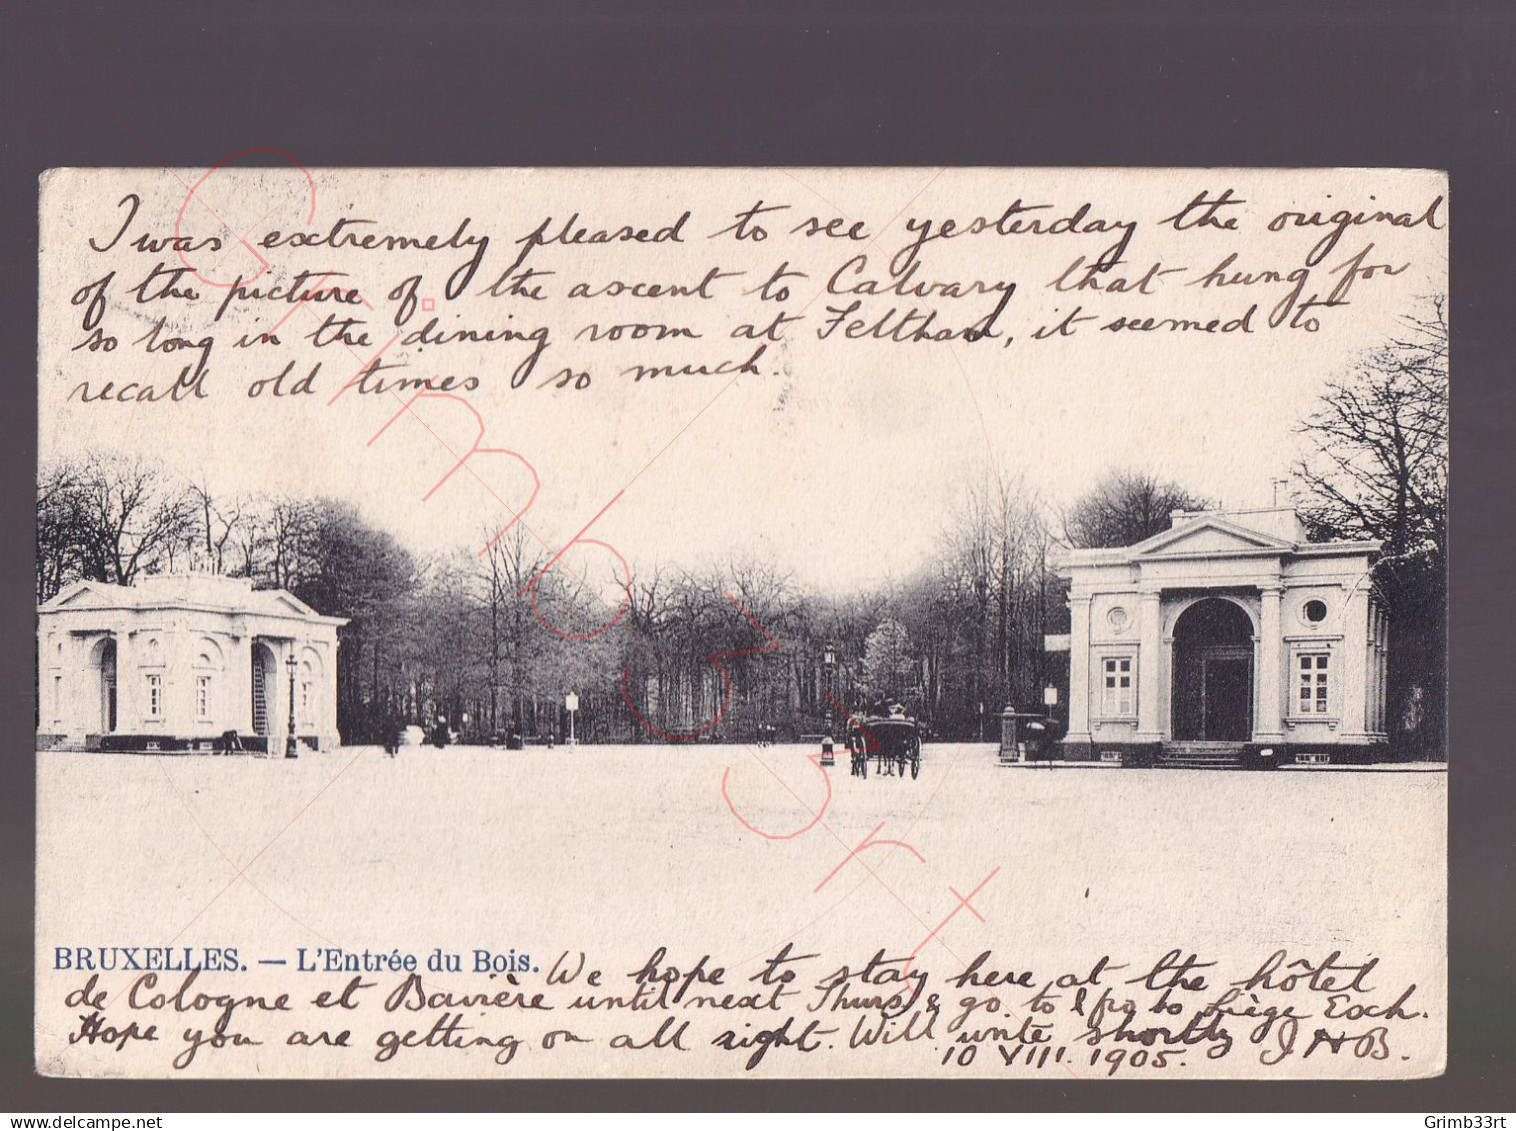 I was extremely pleased to see yesterday the original
of the picture of the ascent to Calvary that hung for
so long in the dining room at Feltham, it seemed to
recall old times so much.
BRUXELLES. — L'Entrée du Bois.
We hope to stay here at the hôtel
de Cologne et Bavière until next Thurs & go to & fro to Liège Exch.
Hope you are getting on all right. Will write shortly J H B.
10 VIII. 1905.
Grimb33rt
delcampe.net
Grimb33rt